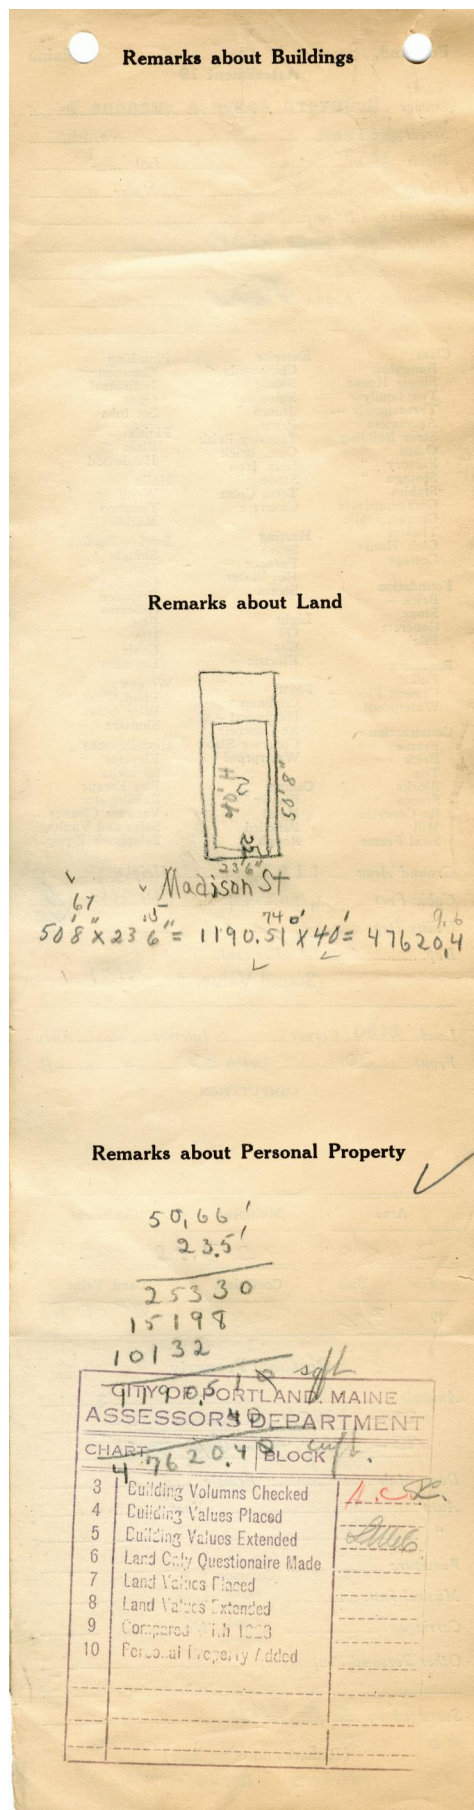 Remarks about Buildings
Remarks about Land
40' H
50' 8"
25
23'6"
Madison St
67 .5 74 0' 9,6
50'8" x 23 6" = 1190.51 x 40' = 47620,4
Remarks about Personal Property
50,66'
23.5'
25330
15198
10132
1190.510 sqft
40
47620.40 cuft.
CITY OF PORTLAND, MAINE
ASSESSORS DEPARTMENT
CHART BLOCK
3 Building Volumns Checked
4 Building Values Placed
5 Building Values Extended
6 Land Only Questionaire Made
7 Land Values Placed
8 Land Values Extended
9 Compared With 1923
10 Personal Property Added